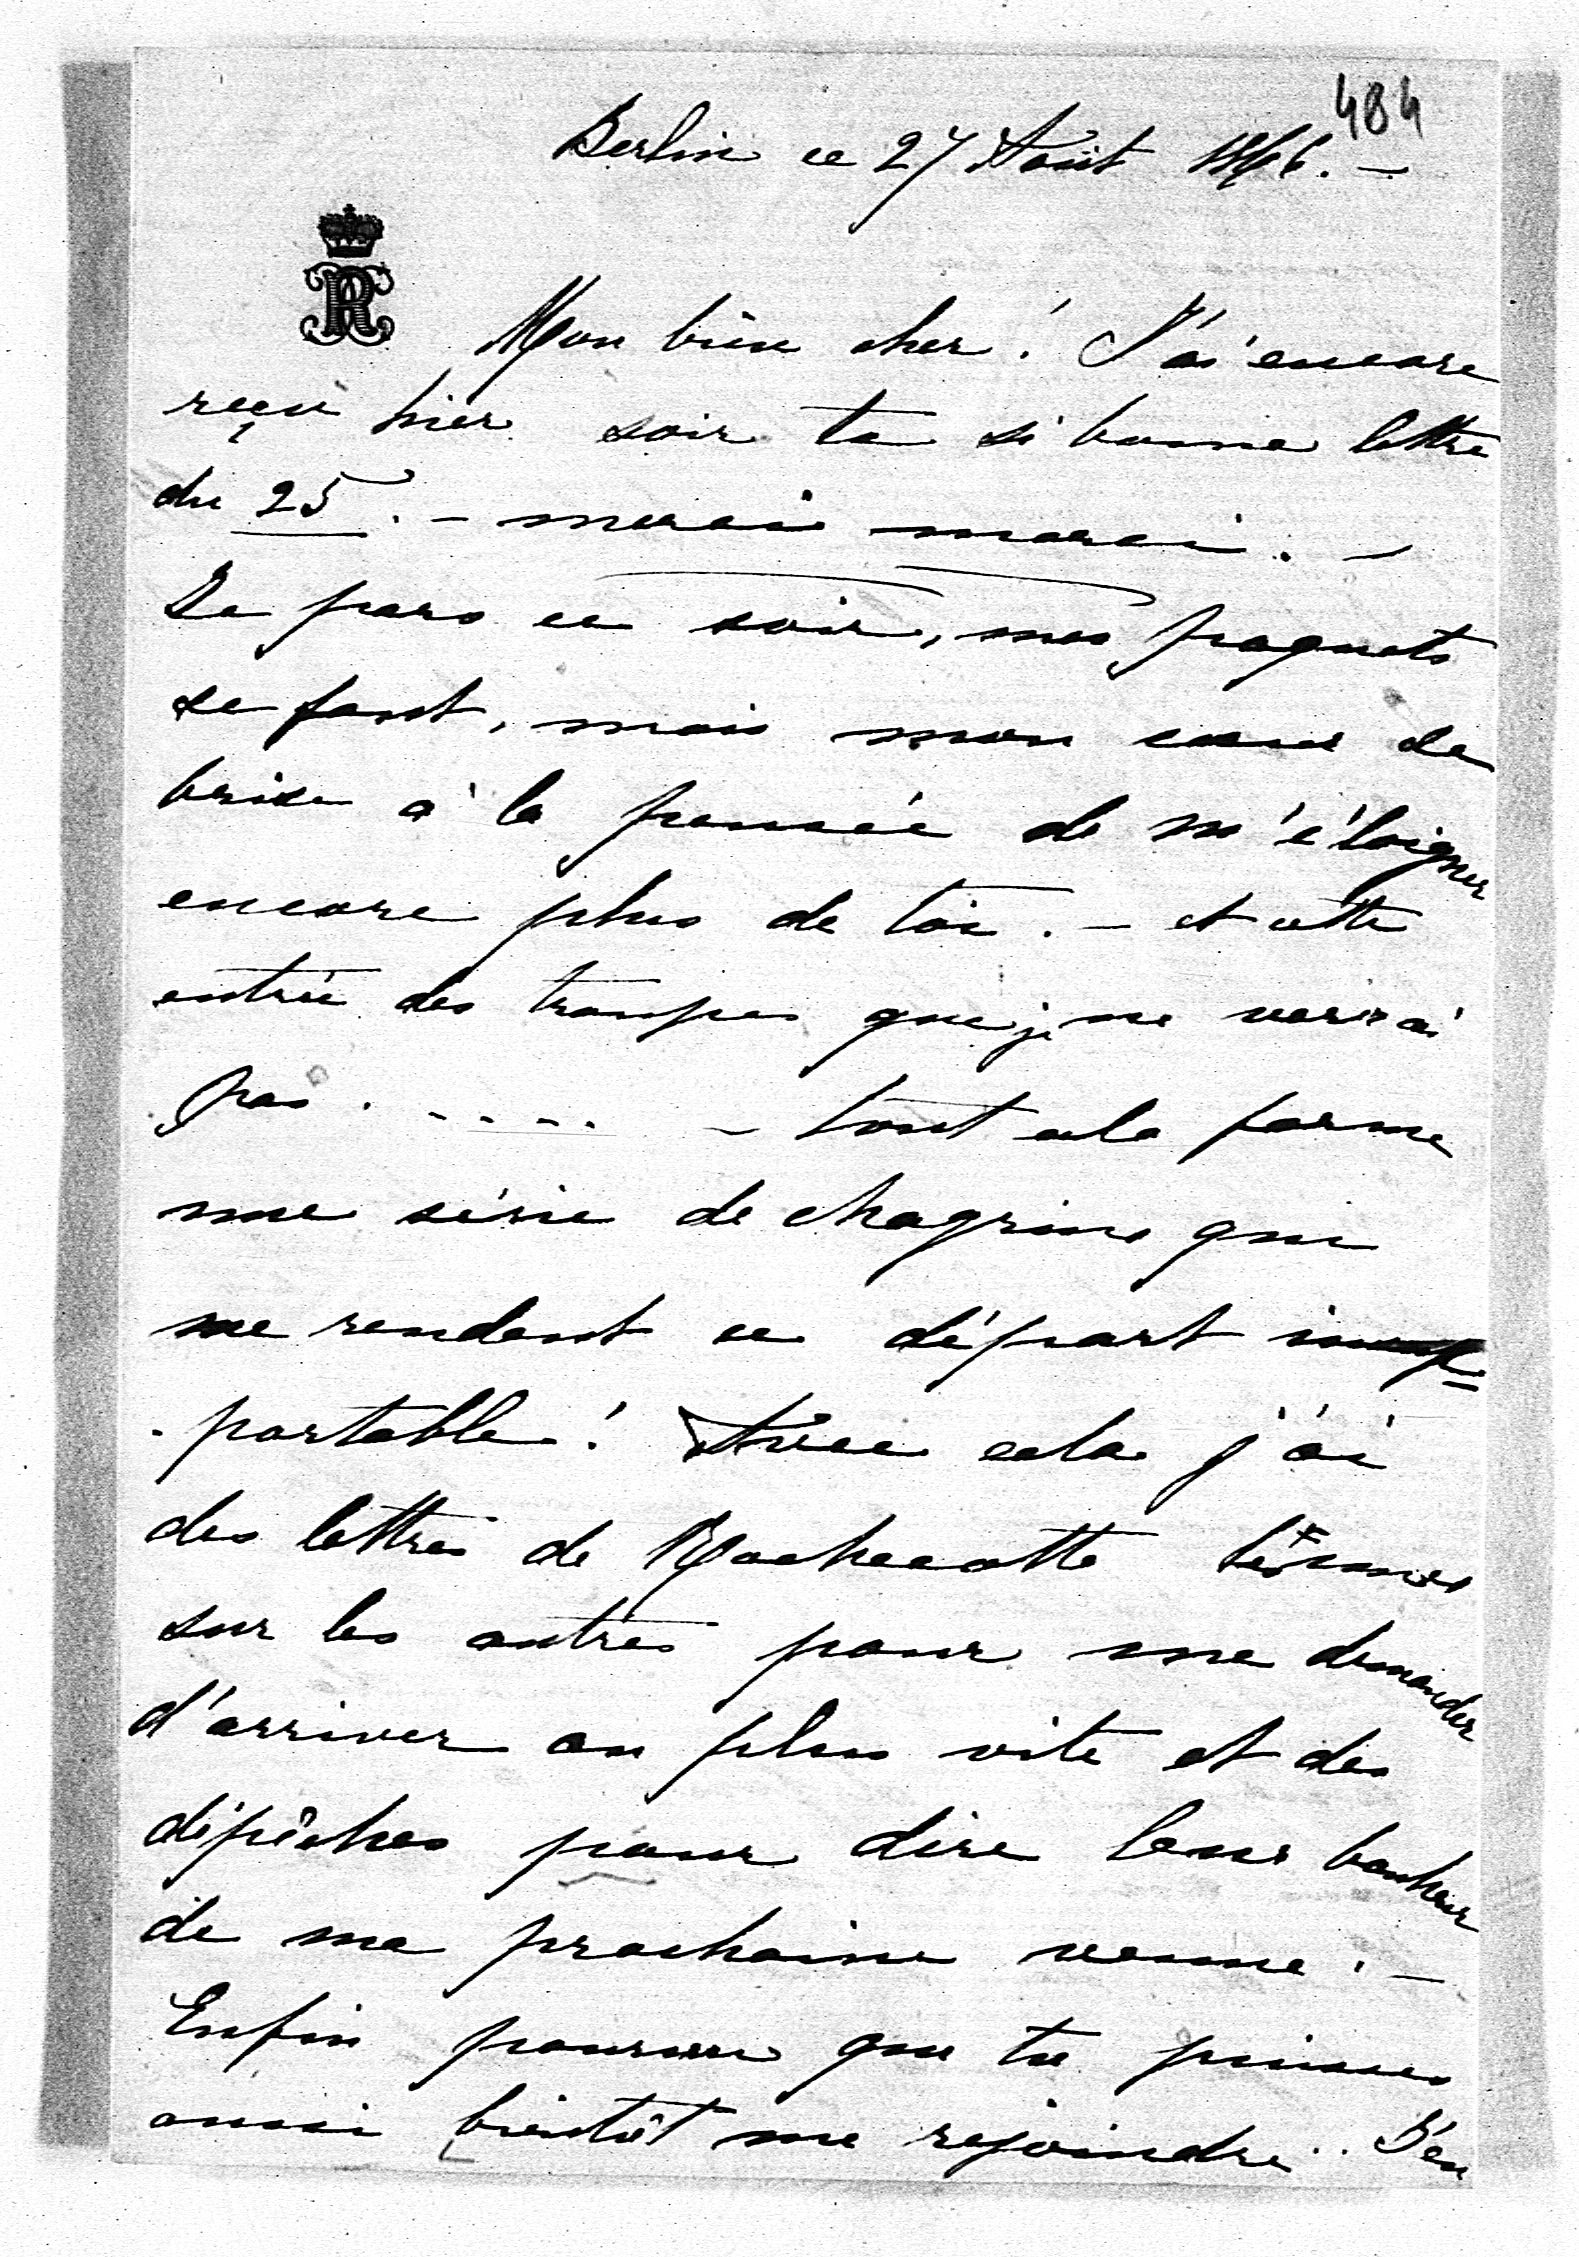 484
Berlin ce 27 Août 1866. –
R
Mon bien cher! J'ai encore
reçu hier soir ta si bonne lettre
du 25. – merci merci. –
Je pars ce soir, mes paquets
se font, mais mon cœur se
brise à la pensée de m'éloigner
encore plus de toi. – et cette
entrée des troupes que je ne verrai
pas. .... – tout cela forme
une série de chagrins qui
me rendent ce départ insup=
portable! Avec cela j'ai
des lettres de Rochecotte les unes
sur les autres pour me demander
d'arriver au plus vite et des
dépêches pour dire leur bonheur
de ma prochaine venue. –
Enfin pourvu que tu puisses
aussi bientôt me rejoindre.. J'en